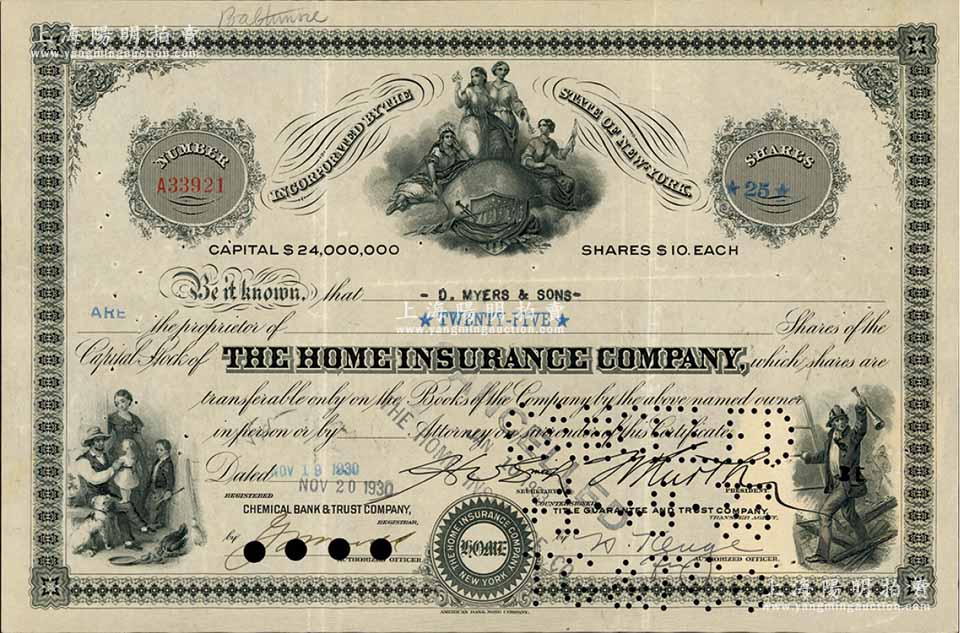 Baltimore
上海陽明拍賣
www.yangmingauction.com
INCORPORATED BY THE STATE OF NEW YORK.
NUMBER
A33921
SHARES
★25★
CAPITAL $24,000,000 SHARES $10. EACH
Be it known, that - D. MYERS & SONS-
ARE the proprietor of ★TWENTY-FIVE★ Shares of the
上海陽明拍賣
www.yangmingauction.com
Capital Stock of THE HOME INSURANCE COMPANY, which shares are
transferable only on the Books of the Company by the above named owner
in person or by Attorney on surrender of this Certificate.
CANCELLED
THE HOME
Dated NOV 19 1930
NOV 20 1930
SECRETARY. PRESIDENT.
REGISTERED COUNTERSIGNED
CHEMICAL BANK & TRUST COMPANY, TITLE GUARANTEE AND TRUST COMPANY
REGISTRAR, TRANSFER AGENT.
by
AUTHORIZED OFFICER. AUTHORIZED OFFICER.
THE HOME INSURANCE COMPANY
HOME
NEW YORK
AMERICAN BANK NOTE COMPANY.
上海陽明拍賣
www.yangmingauction.com